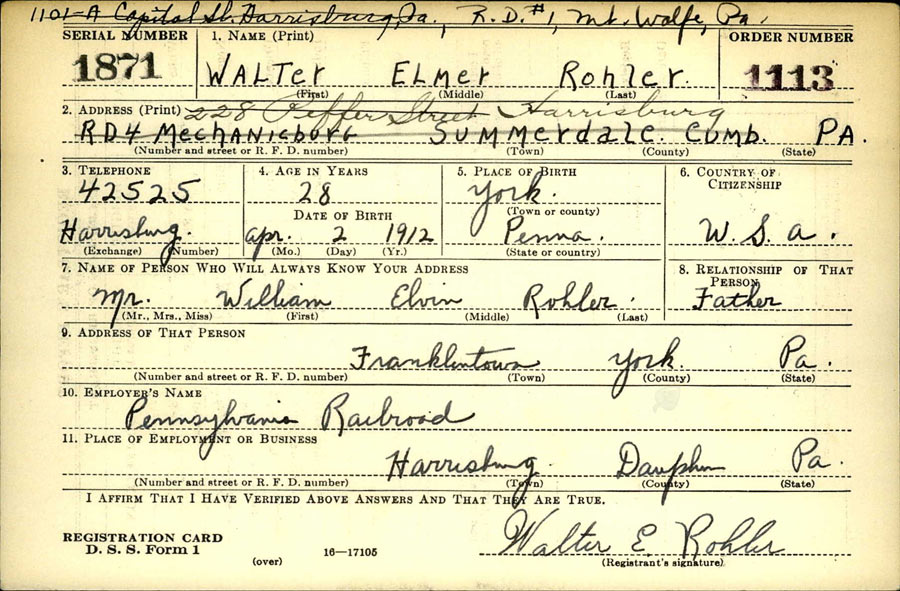 1101-A Capital St. Harrisburg, Pa., R.D.#1, Mt. Wolfe, Pa.
SERIAL NUMBER 1. NAME (Print) ORDER NUMBER
1871 WALTER ELMER ROHLER. 1113
(First) (Middle) (Last)
2. ADDRESS (Print) 228 Peffer Street Harrisburg
RD4 MECHANICBURG SUMMERDALE. CUMB. PA.
(Number and street or R. F. D. number) (Town) (County) (State)
3. TELEPHONE 4. AGE IN YEARS 5. PLACE OF BIRTH 6. COUNTRY OF CITIZENSHIP
42525 28 York.
(Town or county)
DATE OF BIRTH
Harrisburg. Apr. 2 1912 Penna. U. S. a.
(Exchange) (Number) (Mo.) (Day) (Yr.) (State or country)
7. NAME OF PERSON WHO WILL ALWAYS KNOW YOUR ADDRESS 8. RELATIONSHIP OF THAT PERSON
Mr. William Elvin Rohler. Father
(Mr., Mrs., Miss) (First) (Middle) (Last)
9. ADDRESS OF THAT PERSON
Franklintown York Pa.
(Number and street or R. F. D. number) (Town) (County) (State)
10. EMPLOYER'S NAME
Pennsylvania Railroad
11. PLACE OF EMPLOYMENT OR BUSINESS
Harrisburg. Dauphin Pa.
(Number and street or R. F. D. number) (Town) (County) (State)
I AFFIRM THAT I HAVE VERIFIED ABOVE ANSWERS AND THAT THEY ARE TRUE.
REGISTRATION CARD
D. S. S. Form 1 16—17105 Walter E. Rohler
(over) (Registrant's signature)